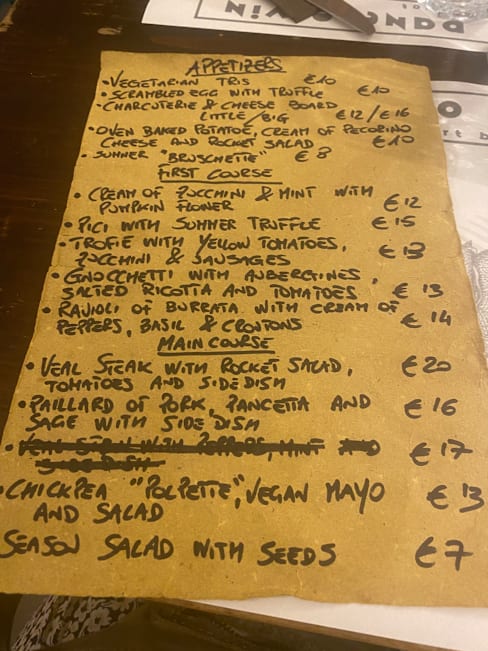 APPETIZERS
• VEGETARIAN TRIS €10
• SCRAMBLED EGG WITH TRUFFLE €10
• CHARCUTERIE & CHEESE BOARD
LITTLE/BIG €12/€16
• OVEN BAKED POTATOE, CREAM OF PECORINO
CHEESE AND ROCKET SALAD €10
• SUMMER "BRUSCHETTE" €8
FIRST COURSE
• CREAM OF ZUCCHINI & MINT WITH
PUMPKIN FLOWER €12
• PICI WITH SUMMER TRUFFLE €15
• TROFIE WITH YELLOW TOMATOES, €13
ZUCCHINI & SAUSAGES
• GNOCCHETTI WITH AUBERGINES,
SALTED RICOTTA AND TOMATOES €13
• RAVIOLI OF BURRATA WITH CREAM OF
PEPPERS, BASIL & CROUTONS €14
MAIN COURSE
• VEAL STEAK WITH ROCKET SALAD, €20
TOMATOES AND SIDE DISH
• PAILLARD OF PORK, PANCETTA AND €16
SAGE WITH SIDE DISH
• VEAL STEAK WITH PEPPERS, MINT AND €17
SIDE DISH
• CHICKPEA "POLPETTE", VEGAN MAYO €13
AND SALAD
SEASON SALAD WITH SEEDS €7